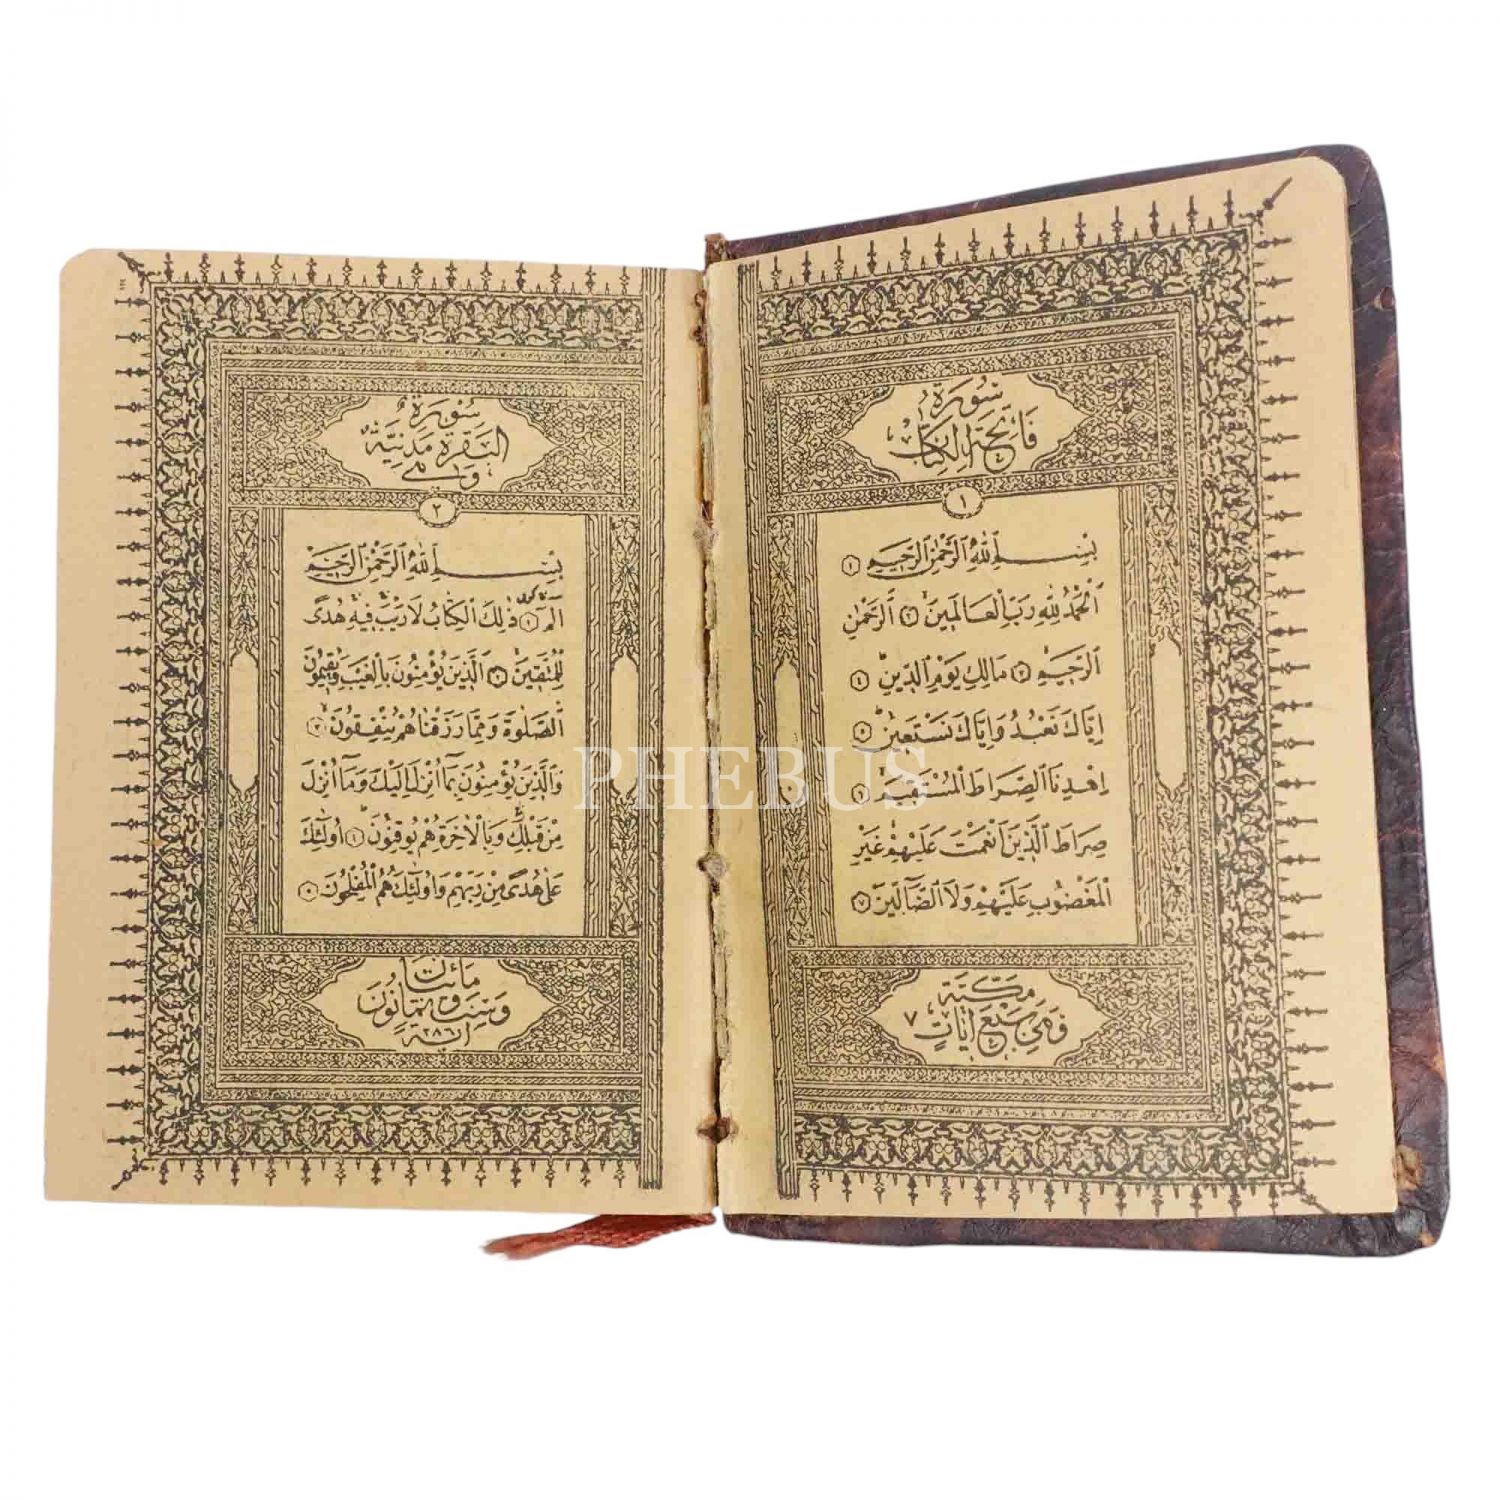 سورة
فاتحة الكتاب
١
بِسْمِ اللّٰهِ الرَّحْمٰنِ الرَّحِيمِ ١
اَلْحَمْدُ لِلّٰهِ رَبِّ الْعَالَمِينَ ٢ اَلرَّحْمٰنِ
الرَّحِيمِ ٣ مَالِكِ يَوْمِ الدِّينِ ٤
اِيَّاكَ نَعْبُدُ وَاِيَّاكَ نَسْتَعِينُ ٥
اِهْدِنَا الصِّرَاطَ الْمُسْتَقِيمَ ٦
صِرَاطَ الَّذِينَ اَنْعَمْتَ عَلَيْهِمْ غَيْرِ
الْمَغْضُوبِ عَلَيْهِمْ وَلَا الضَّالِّينَ ٧
مكية
وهي سبع ايات ٧
سورة
البقرة مدنية
وهي
٢
بِسْمِ اللّٰهِ الرَّحْمٰنِ الرَّحِيمِ
الٓمٓ ١ ذٰلِكَ الْكِتَابُ لَا رَيْبَ فِيهِ هُدًى
لِلْمُتَّقِينَ ٢ اَلَّذِينَ يُؤْمِنُونَ بِالْغَيْبِ وَيُقِيمُونَ
الصَّلٰوةَ وَمِمَّا رَزَقْنَاهُمْ يُنْفِقُونَ ٣
وَالَّذِينَ يُؤْمِنُونَ بِمَا اُنْزِلَ اِلَيْكَ وَمَا اُنْزِلَ
مِنْ قَبْلِكَ وَبِالْاٰخِرَةِ هُمْ يُوقِنُونَ ٤ اُولٰئِكَ
عَلٰى هُدًى مِنْ رَبِّهِمْ وَاُولٰئِكَ هُمُ الْمُفْلِحُونَ ٥
مائتان
وست وثمانون
اية ٢٨٦
PHEBUS